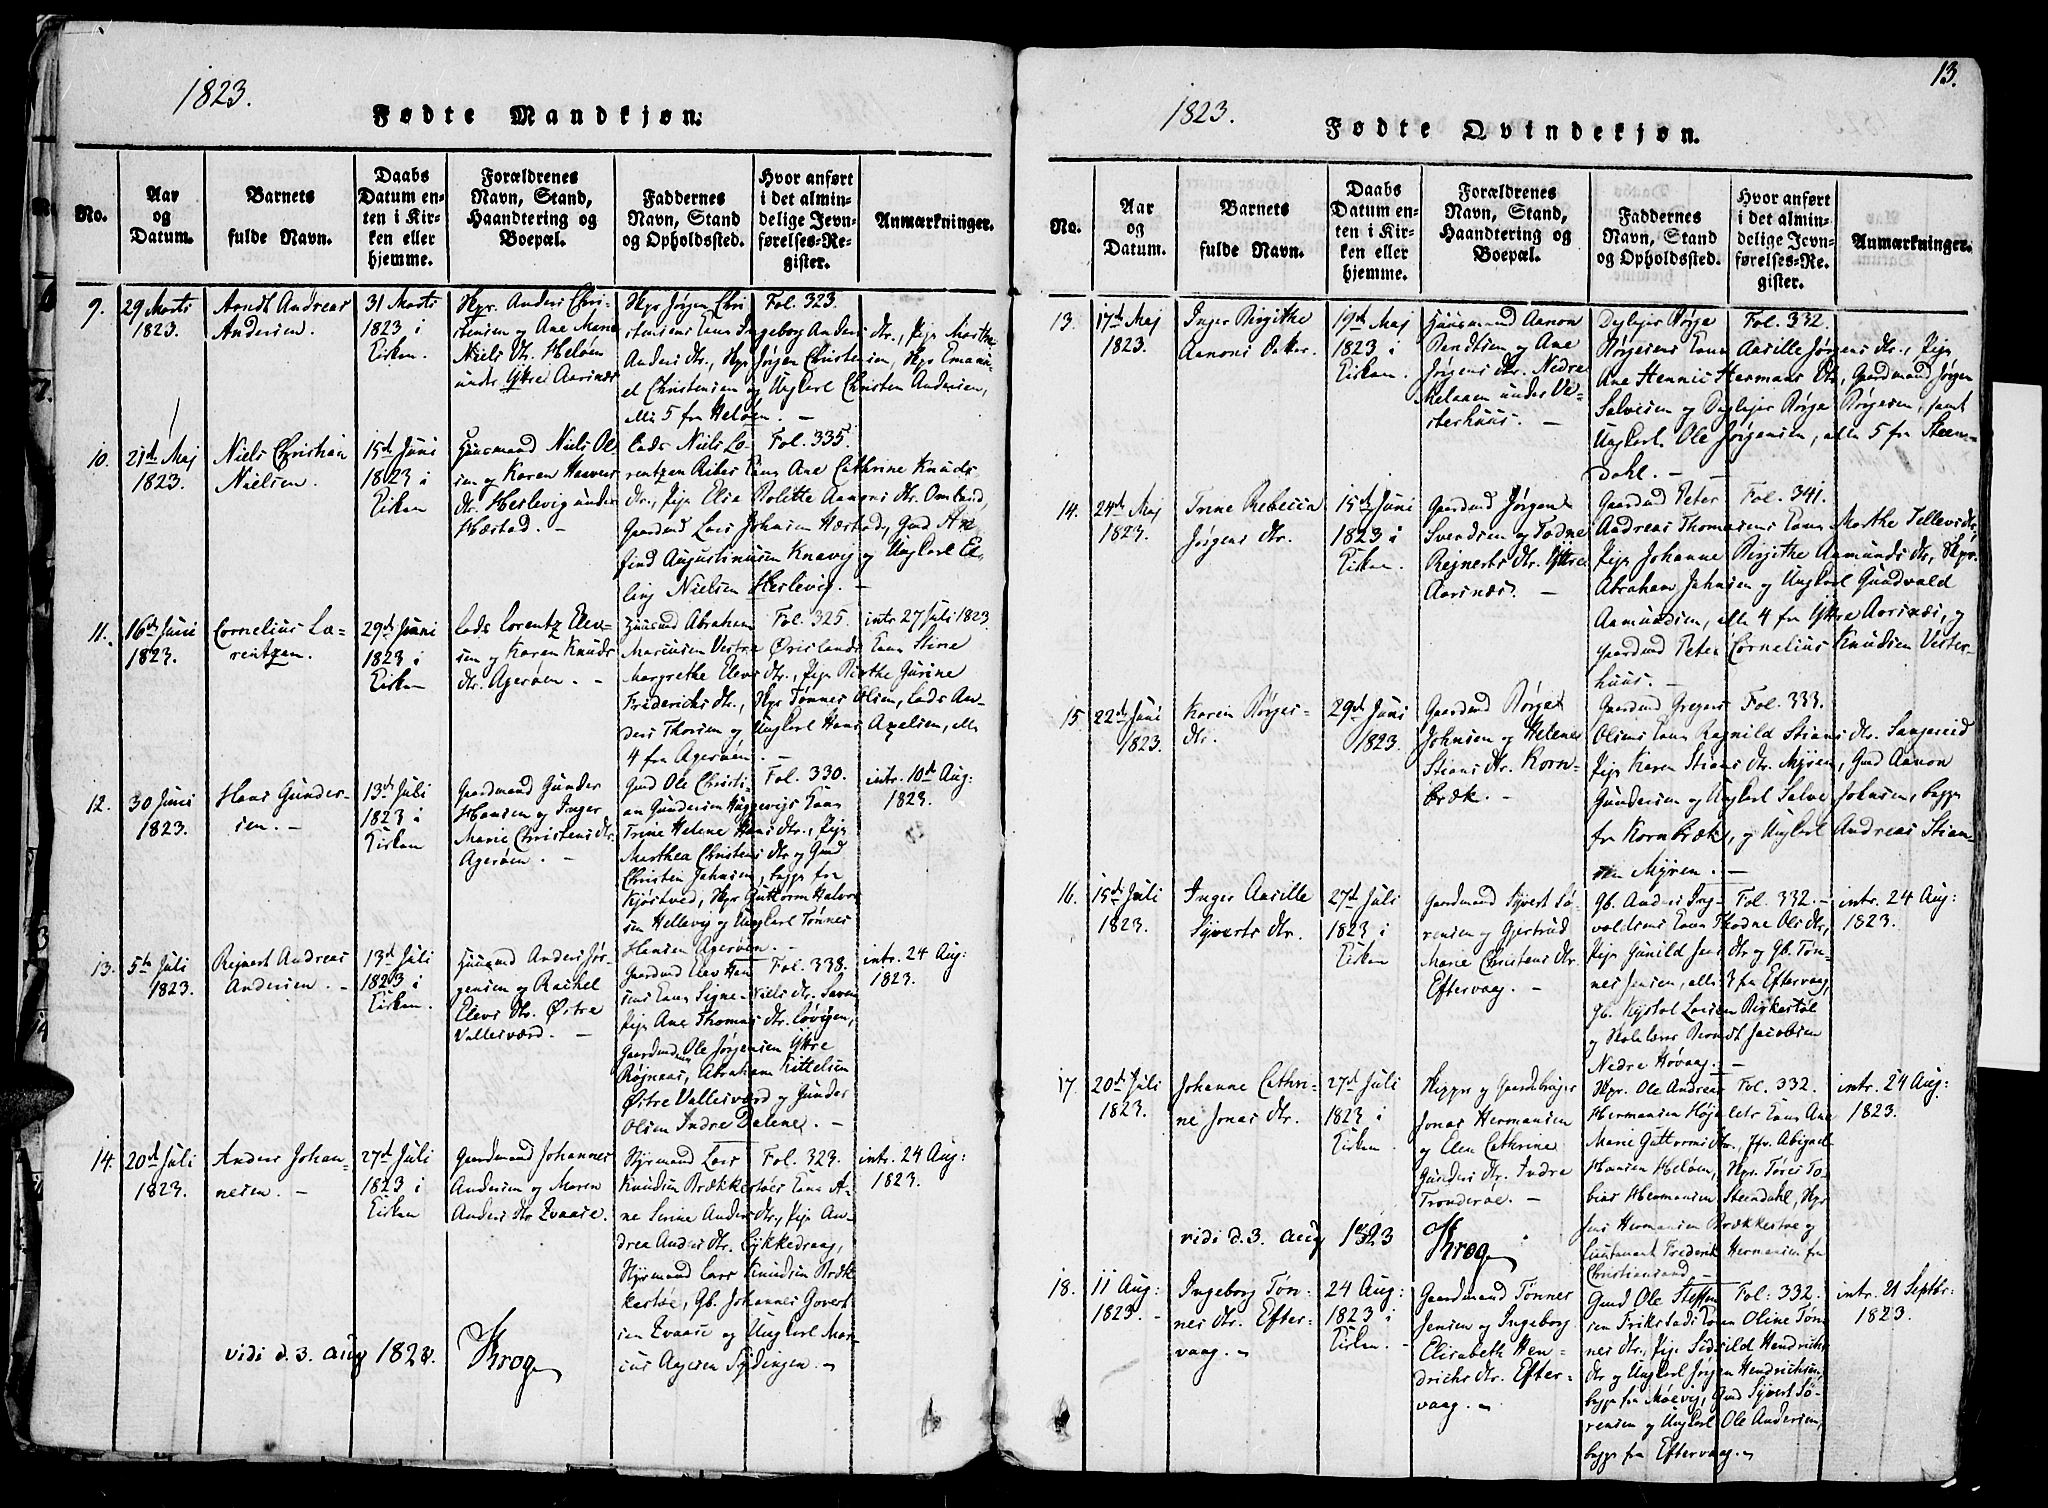 1823.
Fødte Mandkjøn.
No.
Aar
og
Datum.
Barnets
fulde Navn.
Daabs
Datum en-
ten i Kir-
ken eller
hjemme.
Forældrenes
Navn, Stand,
Haandtering og
Boepæl.
Faddernes
Navn, Stand
og Opholdssted.
Hvor anført
i det almin-
delige Jevn-
førelses-Re-
gister.
Anmærkninger.
9.
29 Marti
1823.
Arndt Andreas
Andersen.
31 Marti
1823 i
Kirken.
Skpr. Anders Chri-
stensen og Ane Marie
Niels Dtr. Heløen
under Yttre Aarsnæs
Skpr Jørgen Chri-
stensens Kone Ingeborg Anders Dtr., Pige Marthe
Anders Dtr., Skpr Jørgen Christensen, Skpr Emanu-
el Christensen og Ungkarl Christen Andersen,
alle 5 fra Heløen. –
Fol. 323.
10.
21de Maj
1823.
Niels Christian
Nielsen.
15de Juni
1823 i
Kirken
Huusmand Niels Ol-
sen og Karen Halvors
Dtr. Heslevig under
Hæstad. –
Lods Niels Lo-
rentzen Ribes Kone Ane Cathrine Knuds
Dtr., Pige Elsa Bolitte Aanons Dtr. Ombed,
Gaardmd Lars Johnsen Hæstad, Gmd Arn-
find Augustinusen Knavig og Ungkarl El-
ling Nielsen Heslevig. –
Fol. 335.
11.
16de Juni
1823.
Cornelius La-
rentzen.
29de Juni
1823 i
Kirken
Lods Lorentz Elev-
sen og Karen Knuds
Dtr. Agerøen. –
Huusmd Abraham
Marcussen Vestre Ørislands Kone Stine
Margrethe Elevs Dtr., Pige Birthe Gurine
Frederichs Dtr., Skpr Tønnes Olsen, Lods An-
ders Thorsen og Ungkarl Hans Axelsen, alle
4 fra Agerøen. –
Fol. 325.
intr. 27 Juli 1823.
12.
30 Juni
1823.
Hans Gunder-
sen. –
13de Juli
1823 i
Kirken
Gaardmand Gunder
Hansen og Inger
Marie Christens Dtr.
Agerøen. –
Gmd Ole Christi-
an Gundersen Huggevigs Kone
Trine Helene Hans Dtr., Pige
Marthea Christens Dtr og Gmd
Christen Johnsen, begge fra
Kjøstved, Skpr Guttorm Halvor-
sen Hellevig og Ungkarl Tønnes
Hansen Agerøen. –
Fol. 330.
intr. 10de Aug:
1823.
13.
5te Juli
1823.
Rejnert Andreas
Andersen. –
13de Juli
1823 i
Kirken
Huusmd Anders Jør-
gensen og Rachel
Elevs Dtr. Østre
Vallesværd. –
Gaardmd Elev Han-
sens Kone Signe Niels Dtr. Saven
Pige Ane Thomas Dtr. Løvigen,
Gaardmd Ole Jørgensen Yttre
Røjnaas, Abraham Kittelsen
Østre Vallesværd og Gunder
Olsen Indre Dalene. –
Fol. 338.
intr. 24 Aug:
1823.
14.
20de Juli
1823.
Anders Johan-
nesen. –
27de Juli
1823 i
Kirken
Gaardmand Johannes
Andersen og Maren
Anders Dtr Kvaase.
Styrmand Lars
Knudsen Brækkestøes Kone A-
ne Serine Anders Dtr., Pige An-
drea Anders Dtr. Lykkedrag,
Styrmand Lars Knudsen Bræk-
kestøe, Gb. Johannes Govert-
sen Kvaase og Ungkarl Mar-
cus Aagesen Sydingen. –
Fol. 323.
intr. 24 Aug:
1823.
vidi d. 3. Aug 1823.
Krog
13.
1823.
Fødte Qvindekjøn.
No.
Aar
og
Datum.
Barnets
fulde Navn.
Daabs
Datum en-
ten i Kir-
ken eller
hjemme.
Forældrenes
Navn, Stand,
Haandtering og
Boepæl.
Faddernes
Navn, Stand
og Opholdssted.
Hvor anført
i det almin-
delige Jevn-
førelses-Re-
gister.
Anmærkninger.
13.
17de Maj
1823.
Inger Birgithe
Aanons Datter.
19de Maj
1823 i
Kirken.
Huusmand Aanon
Bendtsen og Ane
Jørgens Dtr. Nedre
under Ve-
sterhuus. –
Børge
Børgesens Kone Aasille Jørgens Dtr., Pige
Ane Hennie Hermans Dtr, Gaardmand Jørgen
Salvesen og Børge Børgesen, samt
Ungkarl Ole Jørgensen, alle 5 fra Steen-
dahl. –
Fol. 332.
14.
24de Maj
1823.
Trine Rebecca
Jørgens Dtr.
15de Juni
1823 i
Kirken.
Gaardmd Jørgen
Svendsen og Todne
Rejnerts Dtr. Yttre
Aarsnæs. –
Gaardmd Peter
Andreas Thomasens Kone Marthe Tellevs Dtr,
Pige Johanne Birgithe Aamunds Dtr, Skpr.
Abraham Johnsen og Ungkarl Gundvald
Aamundsen, alle 4 fra Yttre Aarsnæs, og
Gaardmd Peter Cornelius Knudsen Vester-
huus. –
Fol. 341.
15.
22de Juni
1823.
Karen Børges
Dtr.
29de Juni
1823.
Gaardmd Børge
Johnsen og Helene
Stians Dtr. Korn-
bræk. –
Gaardmd Gregers
Olsens Kone Ragnild Stians Dtr. Sangereid
Pige Karen Stians Dtr. Myren, Gmd Aanon
Gundersen og Ungkarl Salve Johnsen, begge
fra Kornbræk, og Ungkarl Andreas Stian-
sen Myren. –
Fol. 333.
16.
15de Juli
1823.
Inger Aasille
Syverts Dtr.
27de Juli
1823 i
Kirken
Gaardmand Syvert Sø-
rensen og Gjertrud
Marie Christens Dtr.
Eftervaag. –
Gb. Anders Ing-
valdsens Kone Thodne Ols Dtr,
Pige Gunild Jens Dtr og Gb. Tøn-
nes Jensen, alle 3 fra Eftervaag,
Gb. Kistol Larsen Birkestøl
og Skolelærer Berndt Jacobsen
Nedre Høvaag. –
Fol. 332. –
intr. 24 Aug:
1823.
17.
20de Juli
1823.
Johanne Cathri-
ne Jonas Dtr.
27de Juli
1823 i
Kirken.
Skipper og Gaardbruger
Jonas Hermansen
og Elen Cathrine
Gunders Dtr. Indre
Tronderøe. –
Skpr. Ole Andreas
Hermansen Højelets Kone Ane
Marie Guttorms Dtr., Jfr. Abigael
Hansen Heløen, Skpr. Tøres To-
bias Hermansen Steendahl, Skpr
Jens Hermansen Brækkestøe og
Lieutenant Frederik Hermansen fra
Christiansand –
Fol. 332.
intr. 24 Aug:
1823.
vidi d. 3. Aug 1823
Krog
18.
11 Aug:
1823. –
Ingeborg Tøn-
nes Dtr. Efter-
vaag. –
24 Aug:
1823 i
Kirken. –
Gaardmand Tønnes
Jensen og Ingeborg
Elisabeth Hen-
drichs Dtr. Efter-
vaag. –
Gmd Ole Steffen-
sen Trikstads Kone Oline Tøn-
nes Dtr., Pige Sidsild Hendrichs
Dtr og Ungkarl Jørgen Hendrichsen,
begge fra Møevig, Gmd Syvert Sø-
rensen og Ungkarl Ole Andersen,
begge fra Eftervaag. –
Fol: 332.
intr. 21 Septbr:
1823.